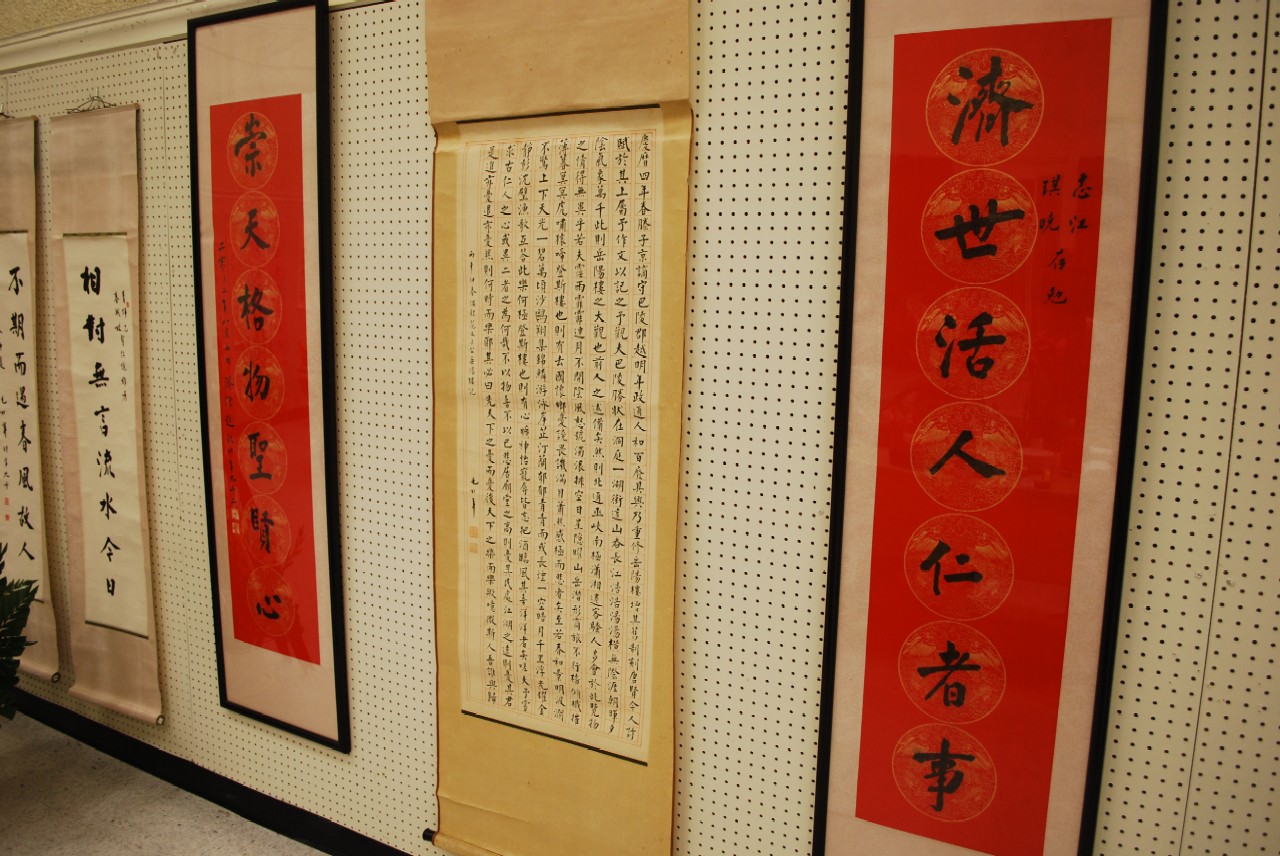 濟世活人仁者事
志江
琪晚
慶曆四年春滕子京謫守巴陵郡越明年政通人和百廢具興乃重修岳陽樓增其舊制刻唐賢今人詩
賦於其上屬予作文以記之予觀夫巴陵勝狀在洞庭一湖銜遠山吞長江浩浩湯湯橫無際涯朝暉夕
陰氣象萬千此則岳陽樓之大觀也前人之述備矣然則北通巫峽南極瀟湘遷客騷人多會於此覽物
之情得無異乎若夫霪雨霏霏連月不開陰風怒號濁浪排空日星隱曜山岳潛形商旅不行檣傾楫摧
薄暮冥冥虎嘯猿啼登斯樓也則有去國懷鄉憂讒畏譏滿目蕭然感極而悲者矣至若春和景明波瀾
不驚上下天光一碧萬頃沙鷗翔集錦鱗游泳岸芷汀蘭郁郁青青而或長煙一空皓月千里浮光耀金
靜影沉璧漁歌互答此樂何極登斯樓也則有心曠神怡寵辱皆忘把酒臨風其喜洋洋者矣嗟夫予嘗
求古仁人之心或異二者之為何哉不以物喜不以己悲居廟堂之高則憂其民處江湖之遠則憂其君
是進亦憂退亦憂然則何時而樂耶其必曰先天下之憂而憂後天下之樂而樂歟噫微斯人吾誰與歸
崇天格物聖賢心
相對無言流水今日
不期而遇春風故人